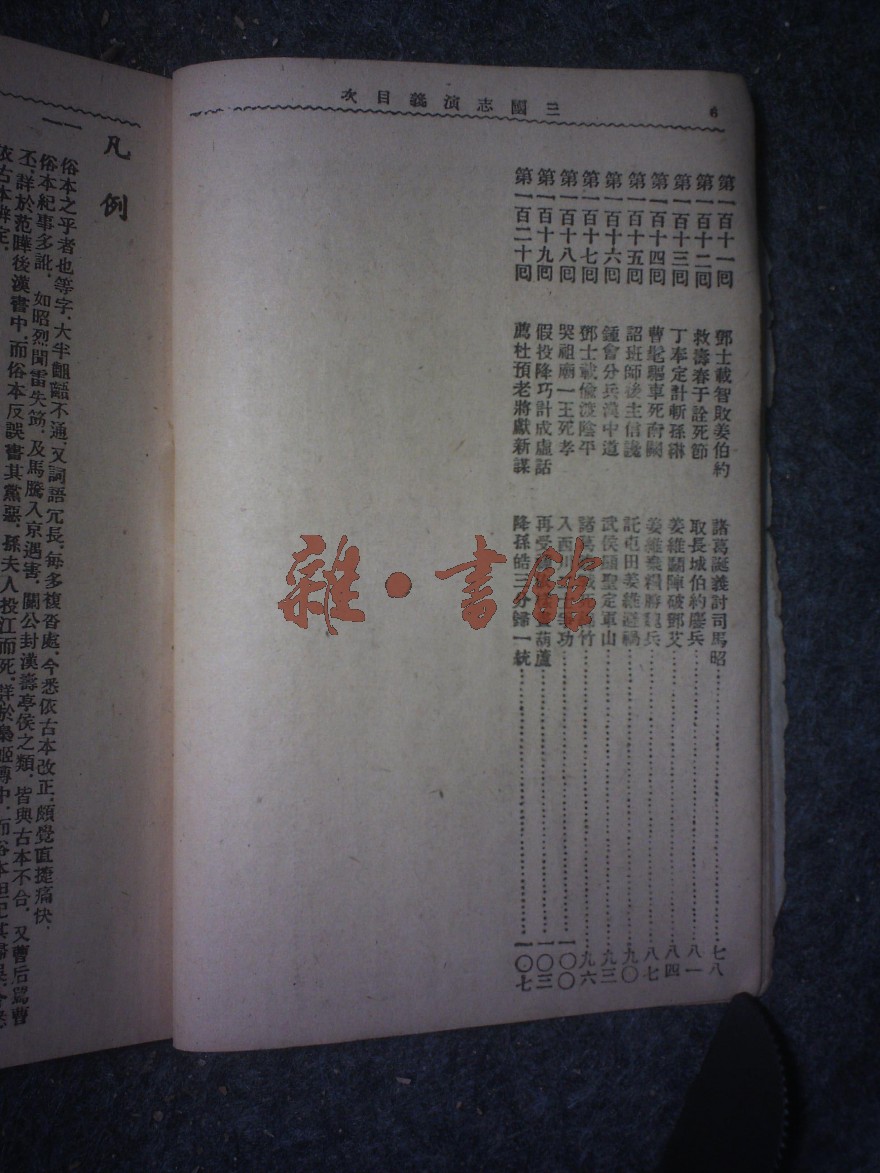 三國志演義目次
6
第一百十一回 鄧士載智敗姜伯約 諸葛誕義討司馬昭 七八
第一百十二回 救壽春于詮死節 取長城伯約鏖兵 八一
第一百十三回 丁奉定計斬孫綝 姜維鬭陣破鄧艾 八四
第一百十四回 曹髦驅車死南闕 姜維棄糧勝魏兵 八七
第一百十五回 詔班師後主信讒 託屯田姜維避禍 九〇
第一百十六回 鍾會分兵漢中道 武侯顯聖定軍山 九三
第一百十七回 鄧士載偷渡陰平 諸葛 竹 九六
第一百十八回 哭祖廟一王死孝 入西川 功 一〇〇
第一百十九回 假投降巧計成虛話 再受 葫蘆 一〇三
第一百二十回 薦杜預老將獻新謀 降孫皓三分歸一統 一〇七
雜·書館
凡例
一 俗本之乎者也等字，大半齟齬不通，又詞語冗長，每多複沓處，今悉依古本改正，頗覺直捷痛快．
一 俗本紀事多訛，如昭烈聞雷失筯，及馬騰入京遇害，關公封漢壽亭侯之類，皆與古本不合，又曹后罵曹
丕，詳於范曄後漢書中，而俗本反誤書其黨惡，孫夫人投江而死，詳於梟姬傳中，而俗本但記其歸吳，今悉
依古本辨定．